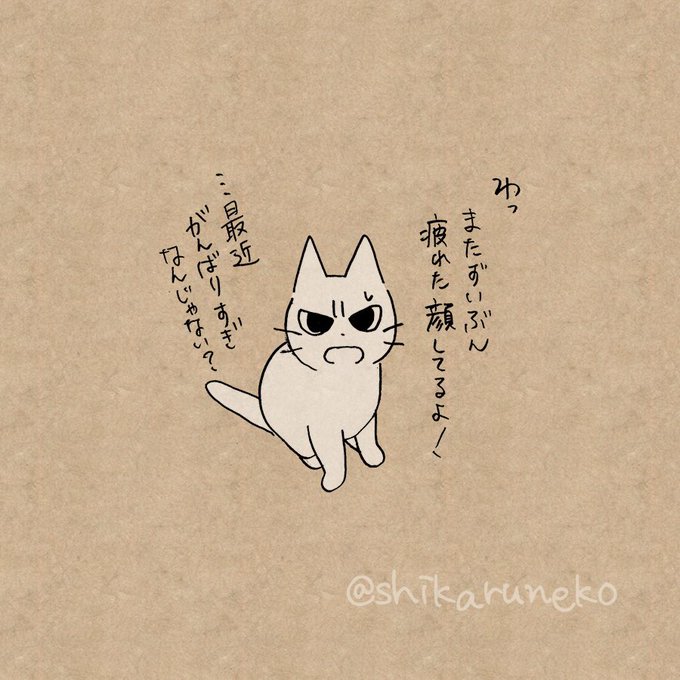 わっ
またずいぶん
疲れた顔してるよ!
…最近
がんばりすぎ
なんじゃない?
@shikaruneko